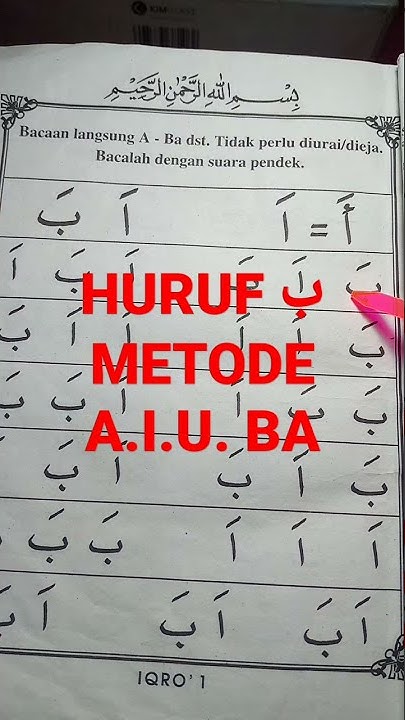 بِسْمِ اللهِ الرَّحْمٰنِ الرَّحِيْمِ
Bacaan langsung A - Ba dst. Tidak perlu diurai/dieja.
Bacalah dengan suara pendek.
أَ = اَ اَ بَ
بَ اَ بَ اَ بَ اَ
HURUF ب
بَ اَ اَ اَ اَ بَ
METODE
بَ بَ اَ اَ بَ بَ
A.I.U. BA
بَ اَ بَ اَ بَ
اَ اَ اَ بَ بَ بَ
اَ بَ اَ بَ اَ بَ
IQRO' 1